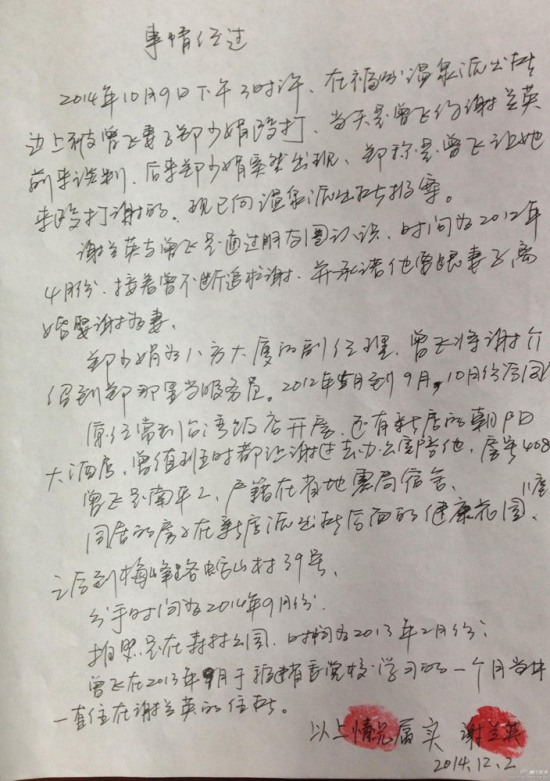 事情经过
2014年10月9日下午3时许,在福州温泉派出所
边上被曾飞妻子郑少娟殴打,当天是曾飞约谢兰英
前来谈判,后来郑少娟突然出现,郑称是曾飞让她
来殴打谢的。现已向温泉派出所报案。
谢兰英与曾飞是通过朋友圈认识,时间为2012年
4月份,接着曾不断追求谢,并承诺他曾跟妻子离
婚娶谢为妻。
郑少娟为八方大厦的副经理,曾飞将谢介
绍到郑那里当服务员。2012年5月到9月,10月份同居
原经常到台湾饭店开房,还有新店的朝阳
大酒店,曾值班时都让谢过去办公室陪他,房号408
曾飞是南平人,户籍在省地震局宿舍、
同居的房子在新店派出所后面的健康花园,11座
之后到梅峰路 山村39号、
分手时间为2014年9月份.
拍照是在森林公园,时间为2013年2月份;
曾飞在2013年9月于福建省委党校学习的一个月当中
一直住在谢兰英的住所。
以上情况属实 谢兰英
2014.12.2